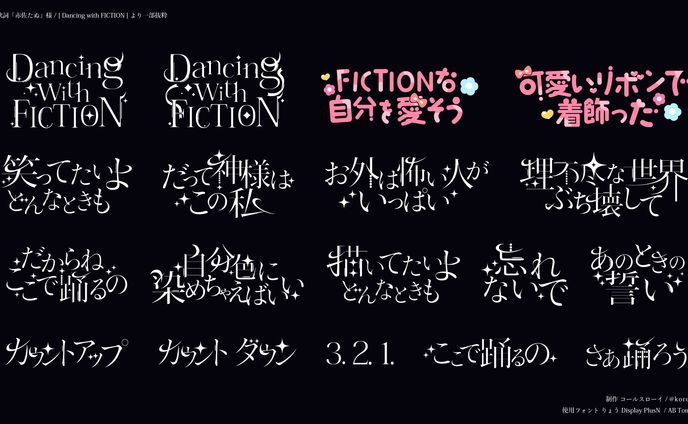 歌詞「赤佐たぬ」様 / [ Dancing with FICTION ] より一部抜粋
Dancing
with
FICTION
Dancing
with
FICTION
FICTIONな
自分を愛そう
可愛いリボンで
着飾った
笑ってたいよ
どんなときも
だって神様は
この私
お外は怖い人が
いっぱい
理不尽な世界
ぶち壊して
だからね
ここで踊るの
自分色に
染めちゃえばいい
描いてたいよ
どんなときも
忘れ
ないで
あのときの
誓い
カウントアップ
カウントダウン
3. 2. 1.
ここで踊るの
さぁ踊ろう
制作 コールスローイ / @koru
使用フォント りょう Display PlusN / AB Tom